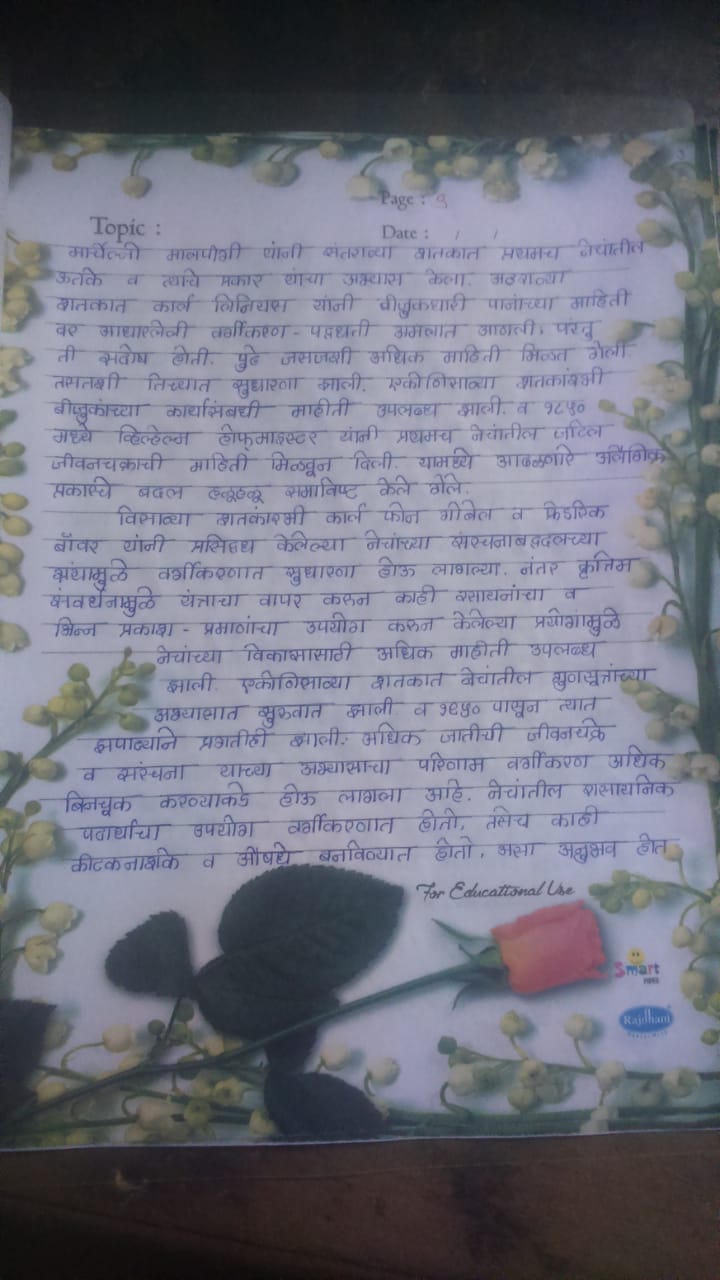 Page : 9
Topic :
Date : / /
मार्चेल्लो मालपीगी यांनी सतराव्या शतकात प्रथमच नेचांतील
ऊतके व त्यांचे प्रकार यांचा अभ्यास केला. अठराव्या
शतकात कार्ल लिनियस यांनी बीजुकधारी पानांच्या माहिती
वर आधारलेली वर्गीकरण - पद्धधती अमलात आणली. परंतु
ती सदोष होती. पुढे जसजशी अधिक माहिती मिळत गेली.
तसतशी तिच्यात सुधारणा झाली. एकोणिसाव्या शतकांरंभी
बीजुकांच्या कार्यासंबधी माहीती उपलब्ध झाली. व १८५०
मध्ये व्हिल्हेल्म होफ्माइस्टर यांनी प्रथमच नेचांतील जटिल
जीवनचक्राची माहिती मिळवून दिली. यामध्ये आढळणारे अलैंगिक
प्रकारचे बदल हळूहळू समाविष्ट केले गेले.
विसाव्या शतकांरंभी कार्ल फोन गोबेल व फ्रेडरिक
बॉवर यांनी प्रसिद्ध केलेल्या नेचांच्या संरचनाबद्दलच्या
ग्रंथामुळे वर्गीकरणात सुधारणा होऊ लागल्या. नंतर कृत्रिम
संवर्धनामुळे यंत्राचा वापर करुन काही रसायनांचा व
भिन्न प्रकाश - प्रमाणांचा उपयोग करुन केलेल्या प्रयोगांमुळे
नेचांच्या विकासासाठी अधिक माहीती उपलब्ध
झाली. एकोणिसाव्या शतकात नेचांतील गुणसूत्रांच्या
अभ्यासात सुरुवात झाली. व १९५० पासून त्यात
झपाट्याने प्रगतीही झाली. अधिक जातीची जीवनचक्रे
व संरचना याच्या अभ्यासाचा परिणाम वर्गीकरण अधिक
बिनचूक करण्याकडे होऊ लागला आहे. नेचांतील रासायनिक
पदार्थाचा उपयोग वर्गीकरणात होतो, तसेच काही
कीटकनाशके व औषधे बनविण्यात होतो, असा अनुभव होत
For Educational Use
Smart
Rajdhani